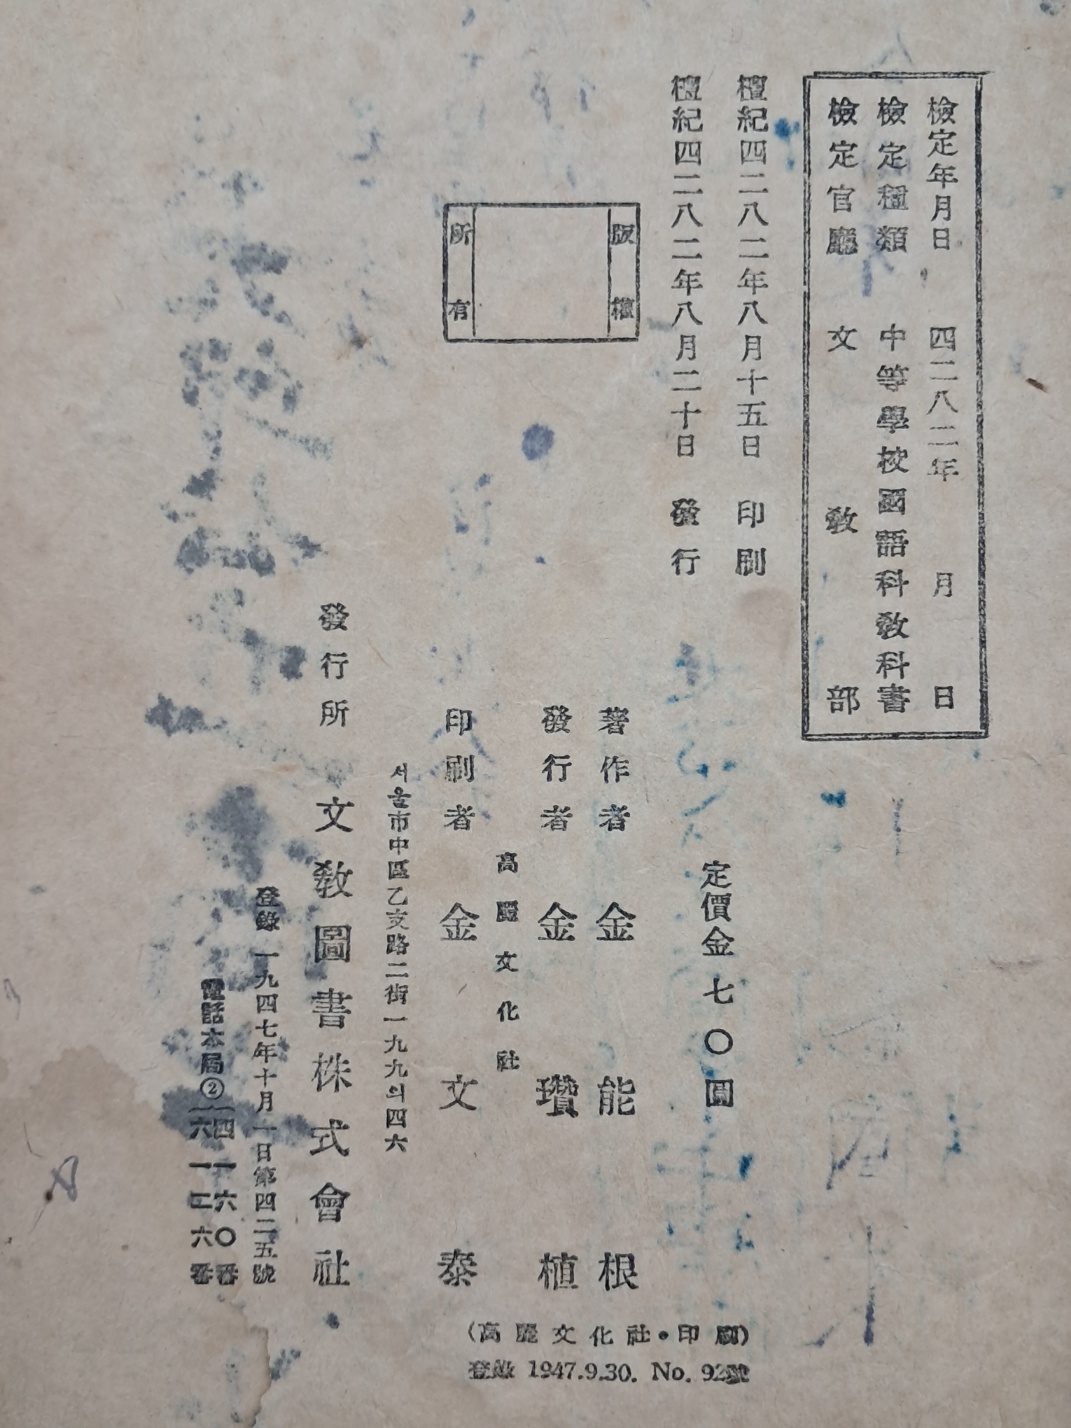 檢定年月日 四二八二年 月 日
檢定種類 中等學校國語科敎科書
檢定官廳 文敎部
檀紀四二八二年八月十五日 印刷
檀紀四二八二年八月二十日 發行
版權
所有
定價金七〇圓
著作者 金能根
發行者 金瓚植
高麗文化社
印刷者 金文泰
서울市中區乙支路二街一九九의四六
發行所 文敎圖書株式會社
登錄一九四七年十月一日第四二五號
電話本局②四一六〇番
六一三六番
(高麗文化社•印刷)
登錄 1947.9.30. No. 92號